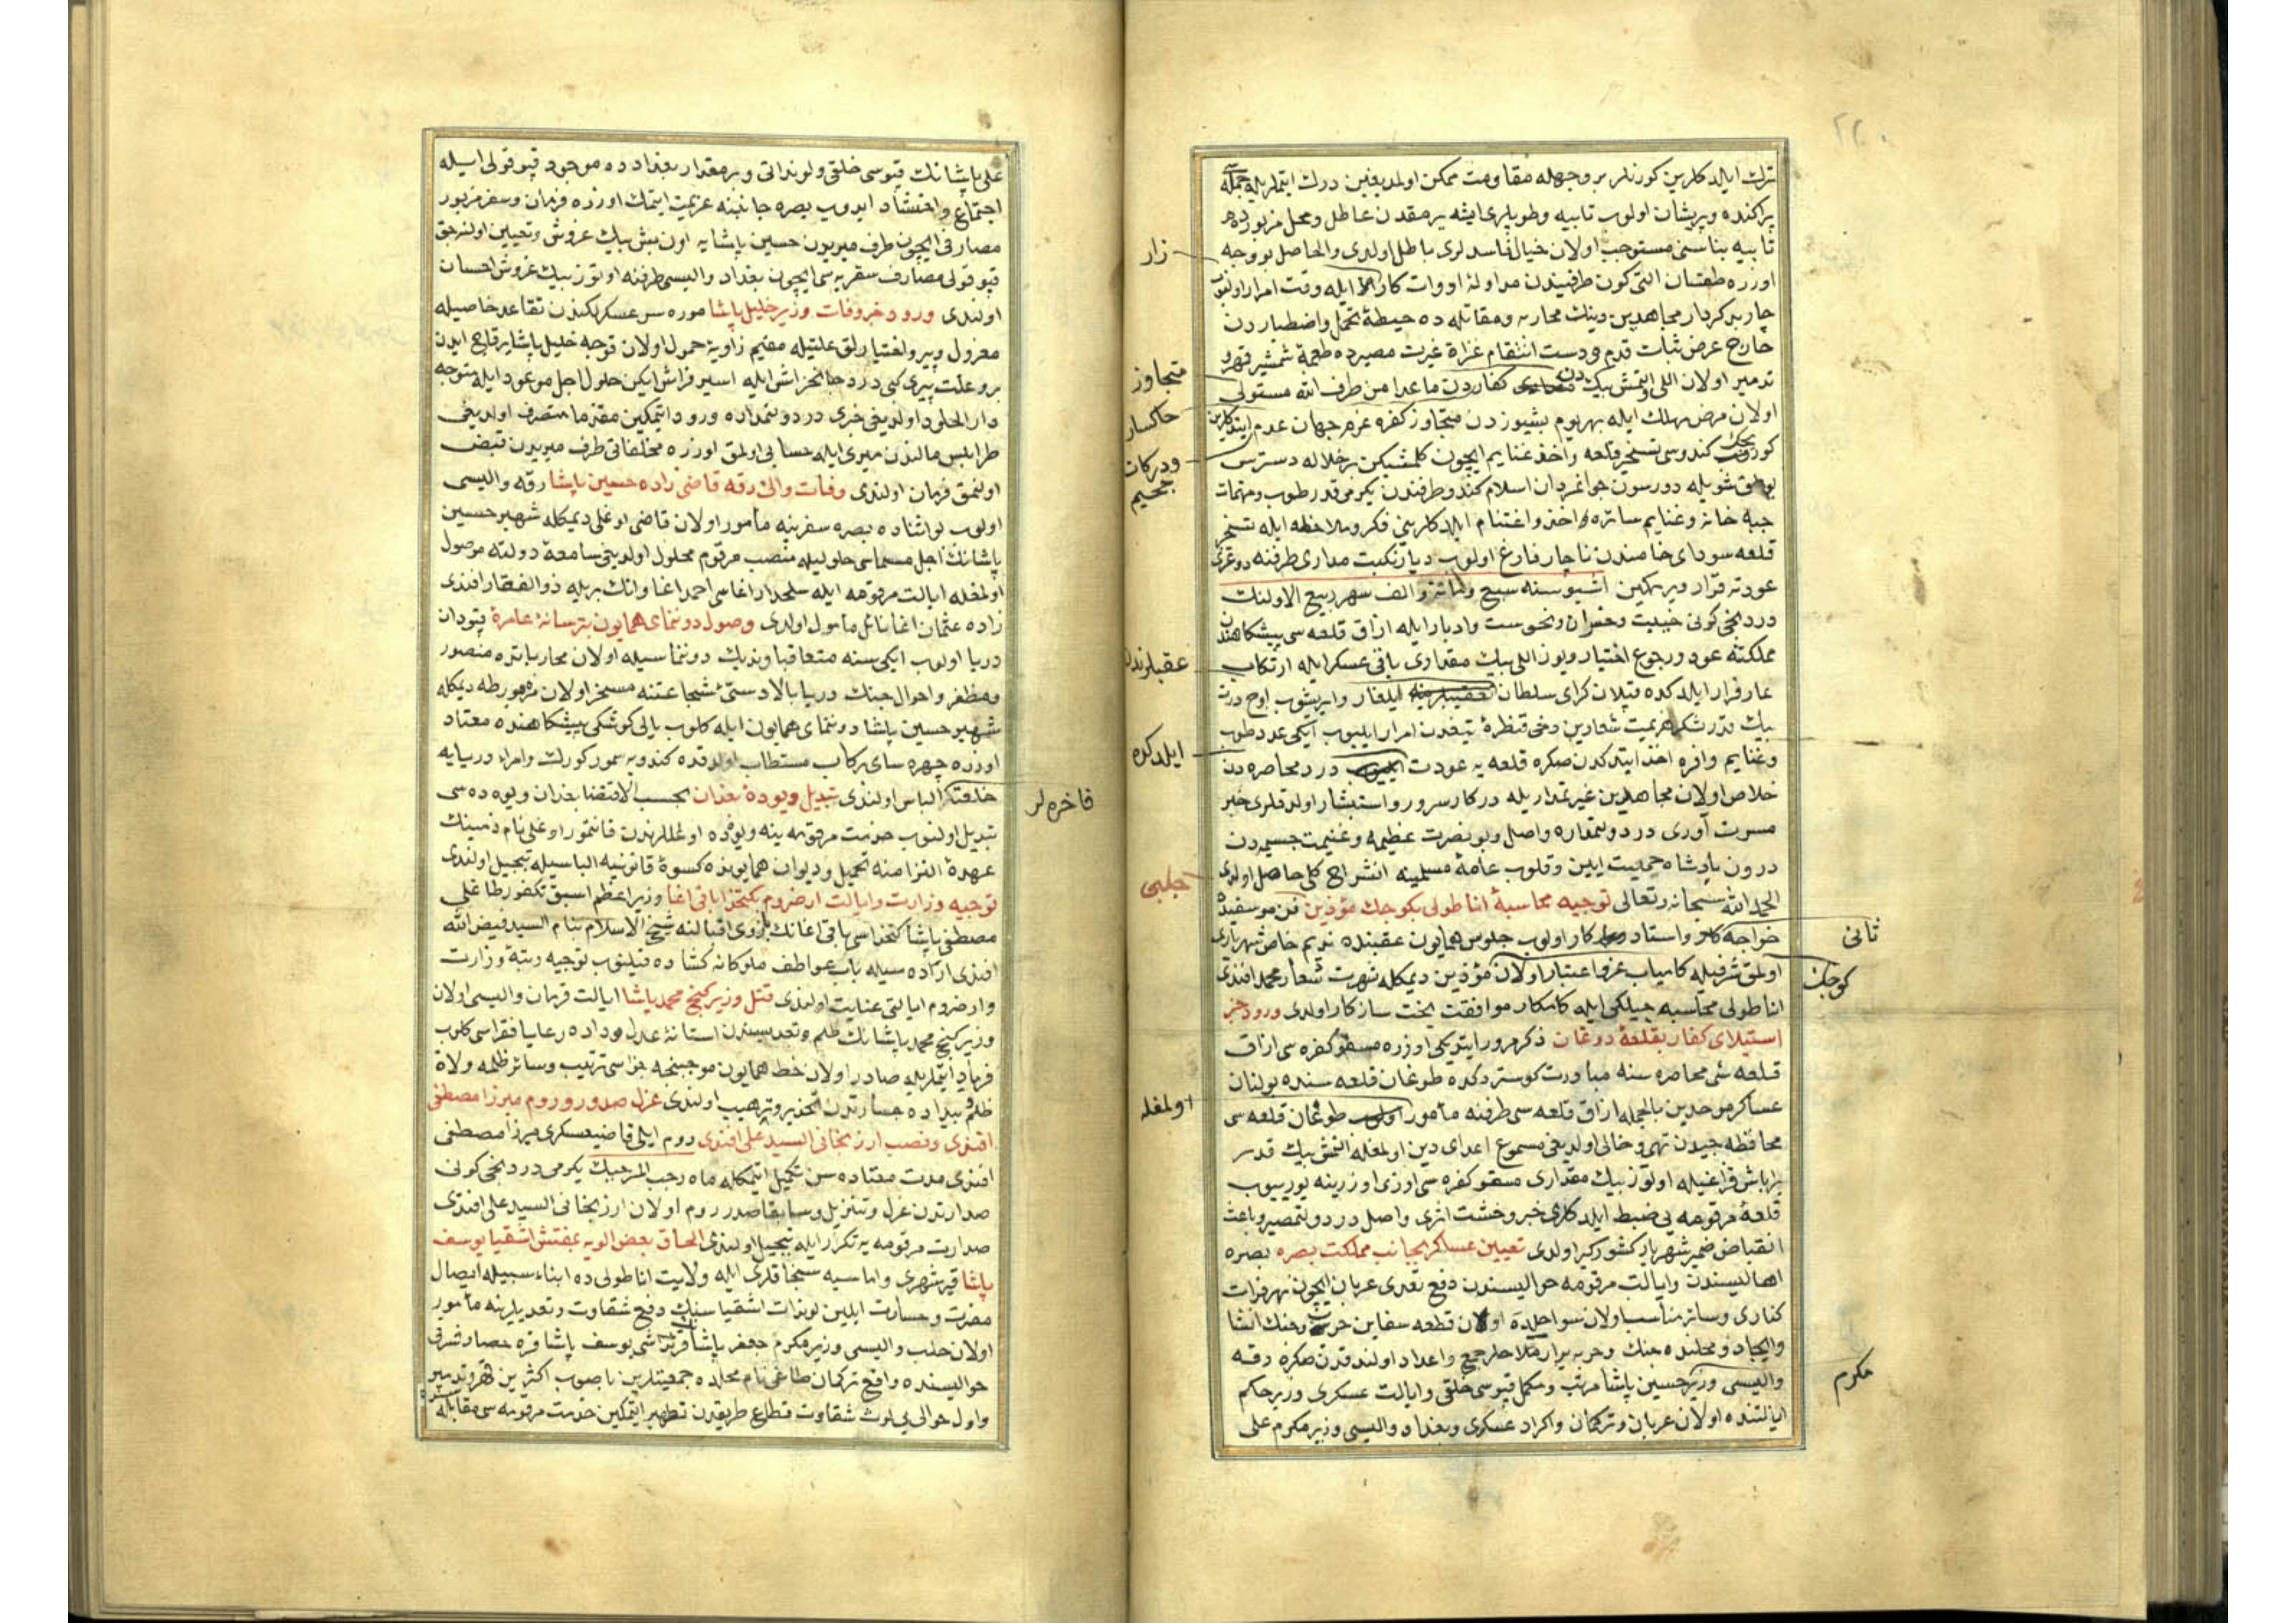 ترك ايلدكلرين كورنلر بر وجهله مقاومت ممكن اولمديغين درك ايتملريله جمله
پراكنده و پريشان اولوب تابيه وطوپلرى ايشه يرمقدن عاطل ومحل مزبورده
تابيه بناسنى مستوجب اولان خيال فاسدلرى باطل اولدى والحاصل بو وجه
زار
اوزره طقسان التى كون طرفيندن مداوله ادوات كار ايله وقت امرار اولنوب
چار بدكردار مجاهدين دينك محاربه ومقاتله ده حيطه تحمل واضطباردن
خارج عرض ثبات قدم ودست انتقام غزاة غيرت مصيرده طعمه شمشير قهر و
تدمير اولان اللى التمش بيك كفاردن ماعدا من طرف الله مستولى
متجاوز
اولان مرض مهلك ايله بهر يوم بشيوزدن متجاوز كفره عزم جهان عدم ايتدكلرين
خاكسار
كوروب كندوسى تسخير قلعه واخذ غنايم ايچون كلمشيكن بر خلاله دسترس
ودركات
جحيم
شويله دورسون جوانمردان اسلام كندو طرفندن يكرمى قدر طوب ومهمات
جبه خانه وغنايم سائره اخذ واغتنام ايلدكلرينى فكر وملاحظه ايله تسخير
قلعه سوداى خامندن ناچار فارغ اولوب ديار نكبت مدارى طرفنه دوغرى
عودته قرار ويرمكين اشبو سنه سبع ومائه والف شهر ربيع الاولنك
دردنجى كونى خيبت وخسران ونحوست وادبار ايله ازاق قلعه سى پيشكاهندن
مملكتنه عود ورجوع اختيار ويوز اللى بيك مقدارى باقى عسكر ايله ارتكاب
عقبلرندن
عار فرار ايلدكده قپلان كراى سلطان ايلغار وايريشوب اوچ درت
بيك قدر لشكر هزيمت شعارين دخى قنطره تيغدن امرار ايليوب ايكى عدد طوب
ايلدكده
وغنايم وافره اخذ ايتدكدن صكره قلعه يه عودت درد محاصره دن
خلاص اولان مجاهدين غيرتمدار يله دركار سرور واستبشار اولدقلرى خبر
مسرت آورى در دولتمداره واصل وبو نصرت عظيمه وغنيمت جسيمه دن
درون پادشاه حميت ايين وقلوب عامه مسلمينه انشراح كلى حاصل اولدى
چلبى
الحمد لله سبحانه وتعالى توجيه محاسبه اناطولى بكوچك مؤذن فن موسقيده
خواجه كار واستاد كار اولوب جلوس همايون عقبنده نديم خاص شهريارى
ثانى
اولمق شرفيله كامياب عز واعتبار اولان مؤذن ديمكله شهرت شعار محمد افندى
كوچك
اناطولى محاسبه جيلكى ايله كامكار موافقت بخت سازكار اولدى ورود خبر
استيلاى كفار بقلعه دوغان ذكر مرور ايتديكى اوزره مسقو كفره سى ازاق
قلعه سى محاصره سنه مبادرت كوستردكده طوغان قلعه سنده بولنان
عساكر موحدين بالجمله ازاق قلعه سى طرفنه مأمور طوغان قلعه سى
اولمغله
محافظه جيدن تهى وخالى اولديغى مسموع اعداى دين اولمغله التمش بيك قدر
برابش قزاغيله اوتوز بيك مقدارى مسقو كفره سى اوزى اوزرينه يورييوب
قلعه مرقومه يى ضبط ايلدكلرى خبر وحشت اثرى واصل در دولتمصير وباعث
انقباض ضمير شهريار كشوركير اولدى تعيين عساكر بجانب مملكت بصره بصره
اهاليسندن وايالت مرقومه حواليسندن دفع تعدى عربان ايچون نهر فرات
كنارى وسائر مناسب اولان سواحلده اولان قطعه سفاين حرب وجنك انشا
وايجاد ومحلنده جنك وحربه يرار ملاحلر جمع واعداد اولندقدن صكره رقه
واليسى وزير حسين پاشا مرتب ومكمل قپوسى خلقى وايالت عسكرى وزير حكم
مكرم
ايالتنده اولان عربان وتركمان واكراد عسكرى وبغداد واليسى وزير مكرم على
على پاشانك قپوسى خلقى ولونداتى وبر مقدار بغدادده موجود قپوقولى ايله
اجتماع واحتشاد ايدوب بصره جانبنه عزيمت ايتمك اوزره فرمان وسفر مزبور
مصارفى ايچون طرف ميريدن حسين پاشايه اون بش بيك غروش وتعيين اولنه جق
قپوقولى مصارف سفريه سى ايچون بغداد واليسى طرفنه اوتوز بيك غروش احسان
اولندى ورود خبر وفات وزير خليل پاشا موره سرعسكرلكندن تقاعد خاصيله
معزول وپير ولغتيارلق علتيله مقيم زاويه خمول اولان قوجه خليل پاشا
بر وعلت پيرى كبى درد جانخراش ايله اسير فراش ايكن حلول اجل موعود ايله متوجه
دار الخلود اولديغى خبرى در دولتمداره ورود ايتمكين مقدما متصرف اولديغى
طرابلس مالندن ميرى ايله حسابى اولمق اوزره مخلفاتى طرف ميريدن قبض
اولنمق فرمان اولندى وفات والى رقه قاضى زاده حسين پاشا رقه واليسى
اولوب بو اثناده بصره سفرينه مأمور اولان قاضى اوغلى ديمكله شهير حسين
پاشانك اجل مسماسى حلوليله منصب مرقوم محلول اولديغى سامعه دولته موصول
اولمغله ايالت مرقومه ايله سلحدار اغاسى احمد اغا وانك يريله ذوالفقار افندى
زاده عثمان اغا نائل مأمول اولدى وصول دونناى همايون بترسانه عامره قپودان
دريا اولوب ايكى سنه متعاقبا ونديك دونماسيله اولان محارباتده منصور
ومظفر واحوال جنك دريا بالادستى شجاعتنه مسخر اولان مزه مورطه ديمكله
شهير حسين پاشا دونماى همايون ايله كلوب يالى كوشكى پيشكاهنده معتاد
اوزره چهره ساى ركاب مستطاب اولدقده كندويه سمور كورك وامراء دريايه
خلعتلر الباس اولندى تبديل ويوده بغدان بحسب الاقتضا بغدان ويوده سى
فاخره لر
تبديل اولنوب خدمت مرقومه ينه ويوده اوغللرندن قانتمور اوغلى نام ذمينك
عهده التزامنه تحميل وديوان همايونده كسوه قانونيه الباسيله تبجيل اولندى
توجيه وزارت وايالت ارضروم بكتخدا باقى اغا وزير اعظم اسبق تكفور طاغلى
مصطفى پاشا كتخداسى باقى اغانك بازوى اقبالنه شيخ الاسلام بنام السيد فيض الله
افندى اراده سيله باب عواطف ملوكانه كشاده قيلنوب توجيه رتبه وزارت
وارضروم ايالتى عنايت اولندى قتل وزير كنج محمد پاشا ايالت قرمان واليسى اولان
وزير كنج محمد پاشانك ظلم وتعديسندن استانه عدل وداده رعايا فقراسى كلوب
فرياد ايتملريله صادر اولان خط همايون موجبنجه جزاسى ترتيب وسائر ظلمه ولاة
ظلم وبيداده جسارتدن تحذير وترهيب اولندى عزل صدور روم ميرزا مصطفى
افندى ونصب ارزنجانى السيد على افندى روم ايلى قاضيعسكرى ميرزا مصطفى
افندى مدت معتاده سن تكميل ايتمكله ماه رجب المرجبك يكرمى دردنجى كونى
صدارتدن عزل وتنزيل وسابقا صدر روم اولان ارزنجانى السيد على افندى
صدارت مرقومه يه تكرار ايله تبجيل اولندى الحاق بعض الويه بمفتش اشقيا يوسف
پاشا قيرشهرى واماسيه سنجاقلرى ايله ولايت اناطولى ده ابناء سبيله ايصال
مضرت وخسارت ايلين لوندات اشقياسنك دفع شقاوت وتعديلرينه مأمور
اولان حلب واليسى وزير مكرم جعفر پاشا قرنداشى يوسف پاشا قره حصار شرقى
حواليسنده واقع تركمان طاغى نام محلده جمعيتلرين باصوب اكثرين قهر وتدمير
واول حوالى يى لوث شقاوت قطاع طريقدن تطهير ايتمكين خدمت مرقومه سى مقابله